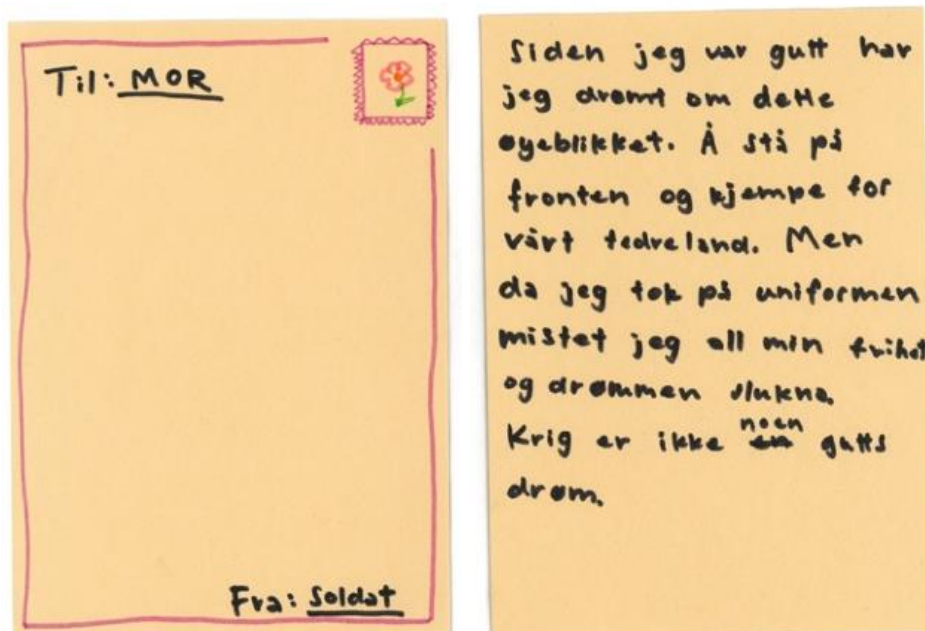 Til: MOR
Fra: Soldat
Siden jeg var gutt har
jeg drømt om dette
øyeblikket. Å stå på
fronten og kjempe for
vårt fedreland. Men
da jeg tok på uniformen
mistet jeg all min frihet
og drømmen slukna.
noen
Krig er ikke en gutts
drøm.